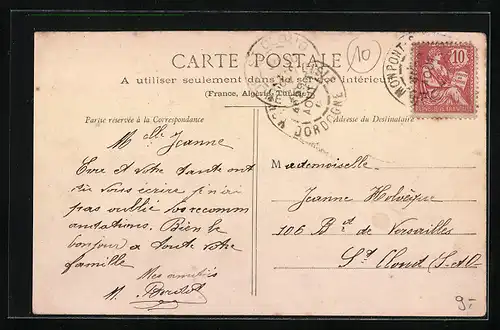 CARTE POSTALE
10
A utiliser seulement dans le service intérieur
(France, Algérie, Tunisie)
Partie réservée à la Correspondance
Adresse du Destinataire
DORDOGNE
MONPONT
10
Mlle Jeanne
et votre tante ont
vous écrire
pas oublié vos recomm
andations. Bien le
bonjour a toute votre
famille
Mes amitiés
M.
Mademoiselle
Jeanne
106 Bd de Versailles
St Cloud (S. et O.
9.-